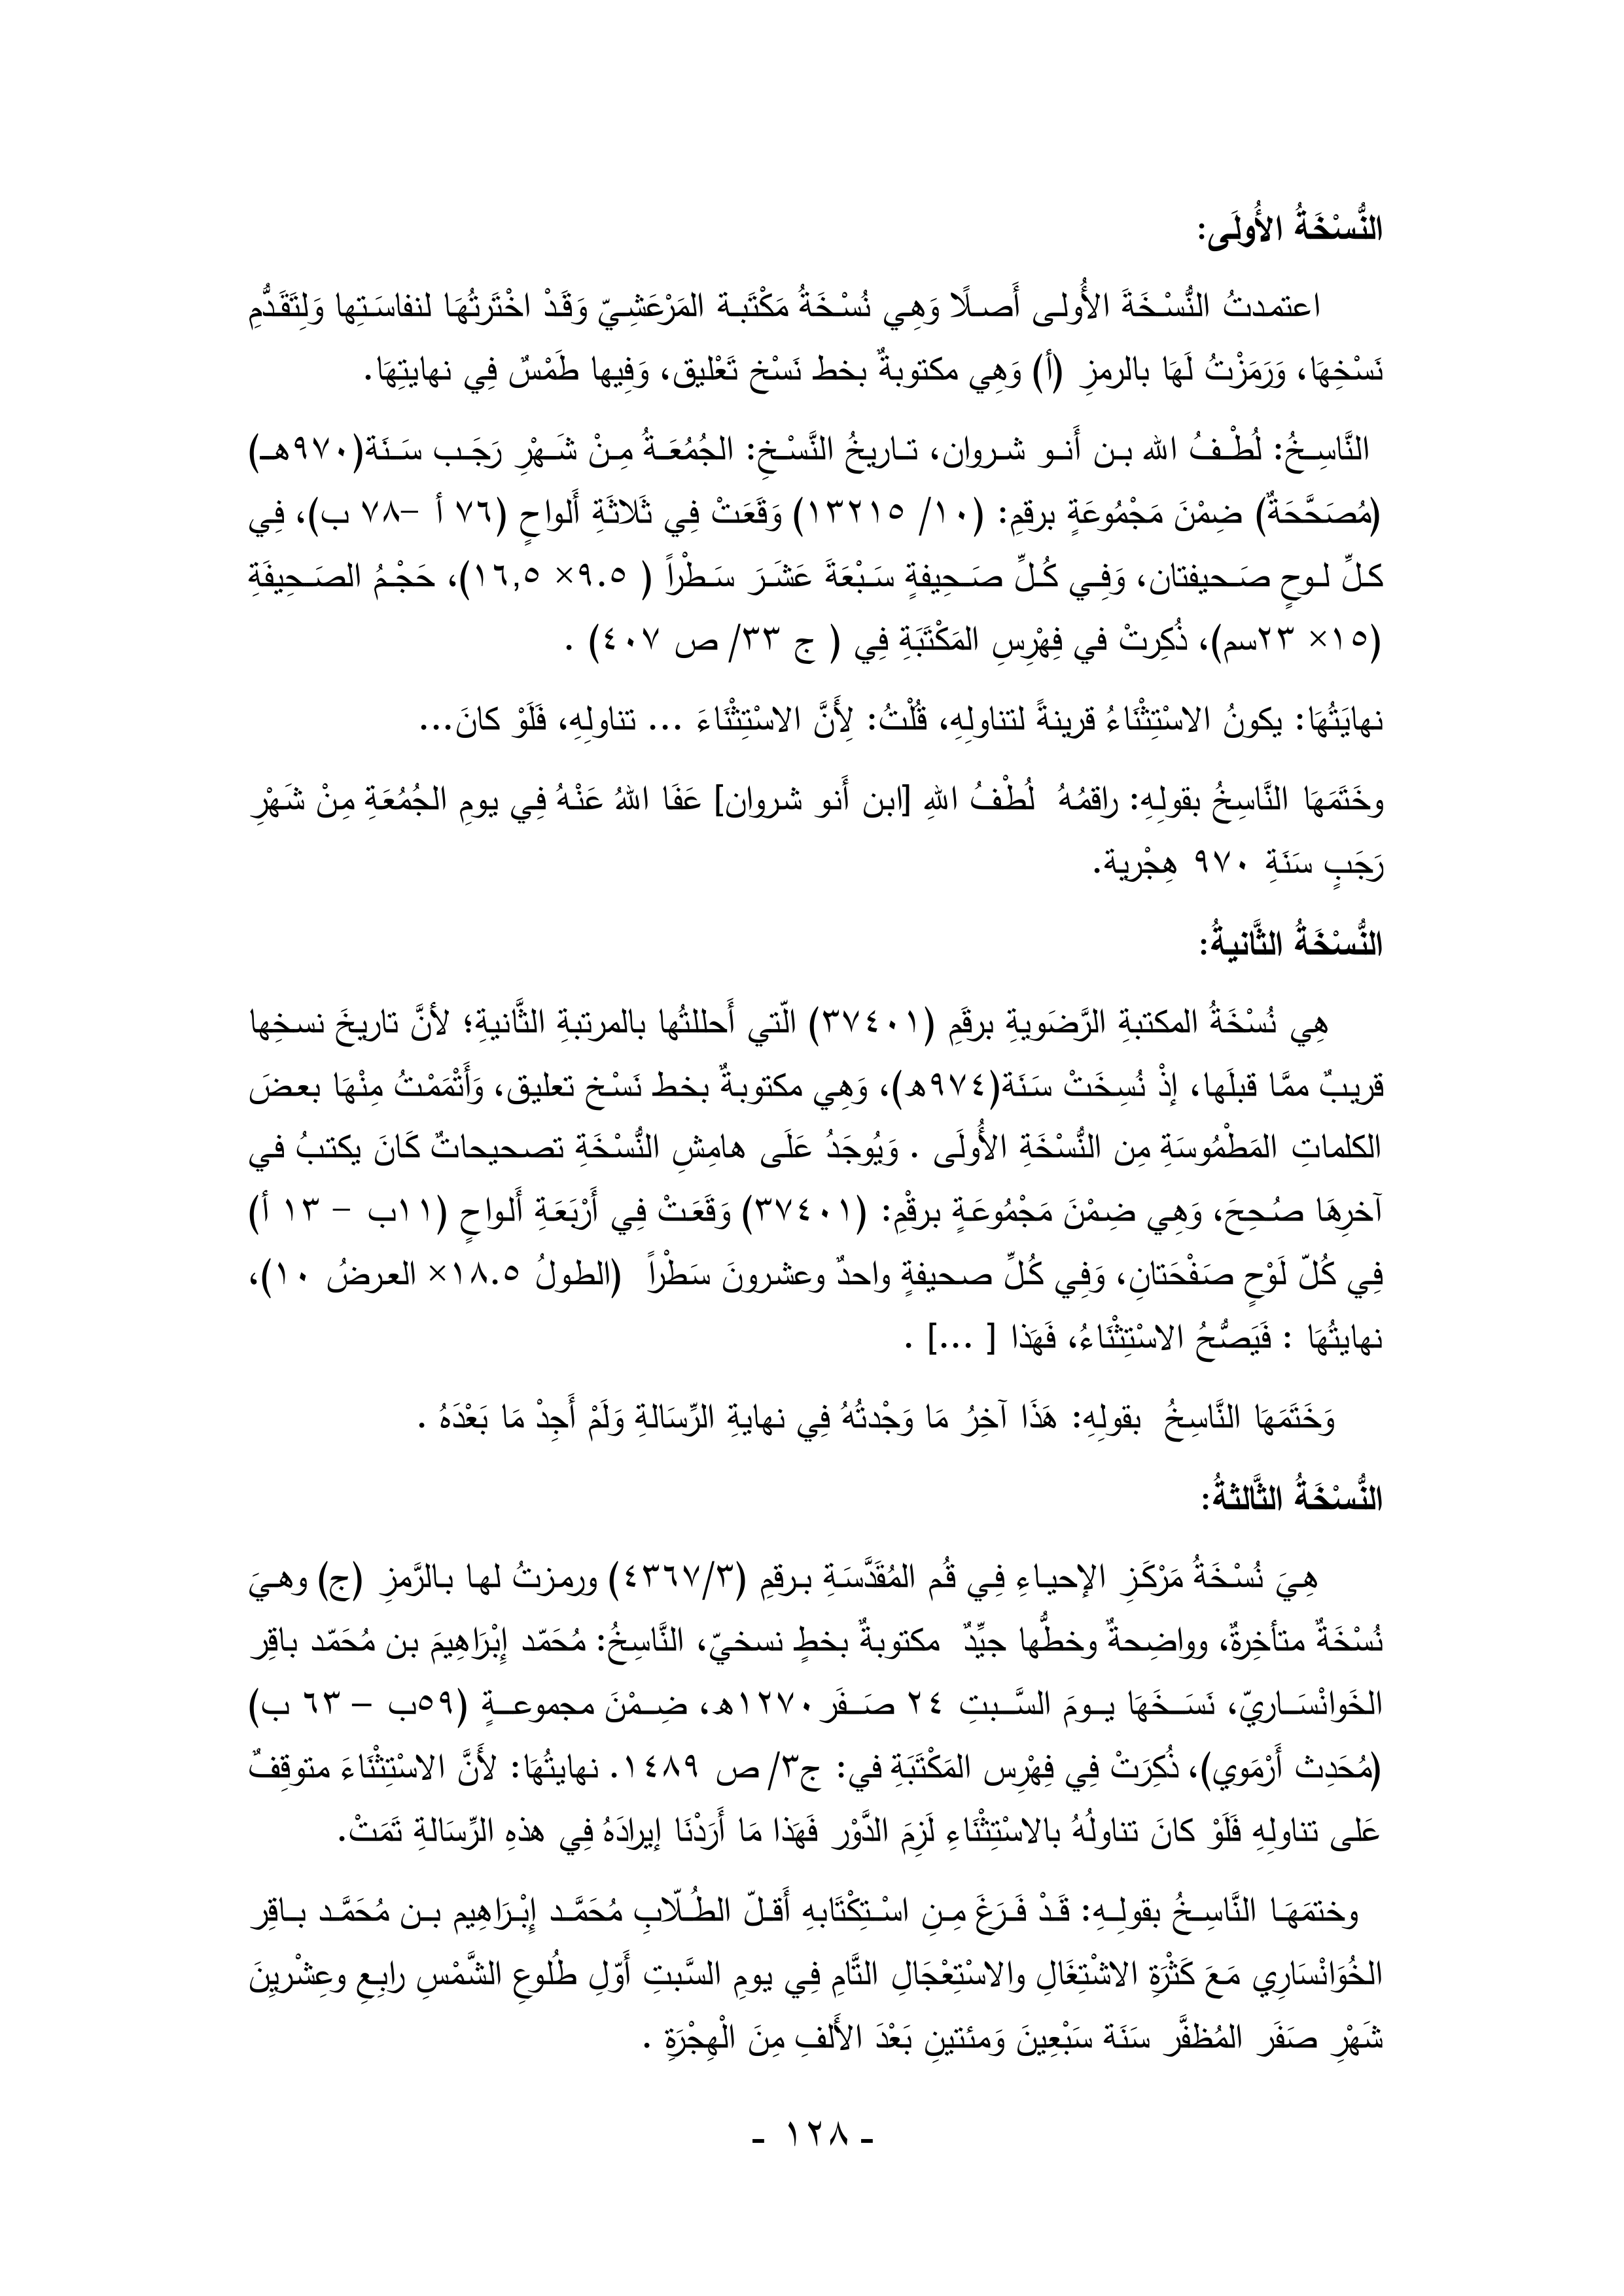 النُّسْخَةُ الأُولَى:
اعتمدتُ النُّسْخَةَ الأُولى أَصلًا وَهِي نُسْخَةُ مَكْتَبة المَرْعَشِيّ وَقَدْ اخْتَرتُهَا لنفاسَتِها وَلِتَقَدُّمِ
نَسْخِهَا، وَرَمَزْتُ لَهَا بالرمزِ (أ) وَهِي مكتوبةٌ بخط نَسْخ تَعْليق، وَفِيها طَمْسٌ فِي نهايتِهَا.
النَّاسِخُ: لُطْفُ الله بن أَنو شروان، تاريخُ النَّسْخِ: الجُمُعَةُ مِنْ شَهْرِ رَجَب سَنَة(٩٧٠هـ)
(مُصَحَّحَةٌ) ضِمْنَ مَجْمُوعَةٍ برقمِ: (١٠/ ١٣٢١٥) وَقَعَتْ فِي ثَلاثَةِ أَلواحٍ (٧٦ أ –٧٨ ب)، فِي
كلِّ لوحٍ صَحيفتان، وَفِي كُلِّ صَحِيفةٍ سَبْعَةَ عَشَرَ سَطْراً ( ٩.٥× ١٦,٥)، حَجْمُ الصَحِيفَةِ
(١٥× ٢٣سم)، ذُكِرتْ في فِهْرِسِ المَكْتَبَةِ فِي ( ج ٣٣/ ص ٤٠٧) .
نهايَتُهَا: يكونُ الاسْتِثْنَاءُ قرينةً لتناولِهِ، قُلْتُ: لِأَنَّ الاسْتِثْنَاءَ ... تناولِهِ، فَلَوْ كانَ...
وخَتَمَهَا النَّاسِخُ بقولِهِ: راقمُهُ لُطْفُ اللهِ [ابن أَنو شروان] عَفَا اللهُ عَنْهُ فِي يومِ الجُمُعَةِ مِنْ شَهْرِ
رَجَبٍ سَنَةِ ٩٧٠ هِجْرية.
النُّسْخَةُ الثَّانيةُ:
هِي نُسْخَةُ المكتبةِ الرَّضَويةِ برقَمِ (٣٧٤٠١) الّتي أَحللتُها بالمرتبةِ الثَّانيةِ؛ لأنَّ تاريخَ نسخِها
قريبٌ ممَّا قبلَها، إذْ نُسِخَتْ سَنَة(٩٧٤ه)، وَهِي مكتوبةٌ بخط نَسْخ تعليق، وَأَتْمَمْتُ مِنْهَا بعضَ
الكلماتِ المَطْمُوسَةِ مِن النُّسْخَةِ الأُولَى . وَيُوجَدُ عَلَى هامِشِ النُّسْخَةِ تصحيحاتٌ كَانَ يكتبُ في
آخرِهَا صُحِحَ، وَهِي ضِمْنَ مَجْمُوعَةٍ برقْمِ: (٣٧٤٠١) وَقَعَتْ فِي أَرْبَعَةِ أَلواحٍ (١١ب – ١٣ أ)
فِي كُلّ لَوْحٍ صَفْحَتانِ، وَفِي كُلِّ صحيفةٍ واحدٌ وعشرونَ سَطْراً (الطولُ ١٨.٥× العرضُ ١٠)،
نهايتُهَا : فَيَصُّحُ الاسْتِثْنَاءُ، فَهَذا [ ...] .
وَخَتَمَهَا النَّاسِخُ بقولِهِ: هَذَا آخِرُ مَا وَجْدتُهُ فِي نهايةِ الرِّسَالةِ وَلَمْ أَجِدْ مَا بَعْدَهُ .
النُّسْخَةُ الثَّالثةُ:
هِيَ نُسْخَةُ مَرْكَزِ الإحياءِ فِي قُم المُقَدَّسَةِ برقمِ (٤٣٦٧/٣) ورمزتُ لها بالرَّمزِ (ج) وهيَ
نُسْخَةٌ متأخِرةٌ، وواضِحةٌ وخطُّها جيِّدٌ مكتوبةٌ بخطٍ نسخيّ، النَّاسِخُ: مُحَمّد إِبْرَاهِيمَ بن مُحَمّد باقِر
الخَوانْسَاريّ، نَسَخَهَا يومَ السَّبتِ ٢٤ صَفَر١٢٧٠ه، ضِمْنَ مجموعةٍ (٥٩ب – ٦٣ ب)
(مُحَدِث أَرْمَوي)، ذُكِرَتْ فِي فِهْرِس المَكْتَبَةِ في: ج٣/ ص ١٤٨٩. نهايتُهَا: لأَنَّ الاسْتِثْنَاءَ متوقِفٌ
عَلى تناولِهِ فَلَوْ كانَ تناولُهُ بالاسْتِثْنَاءِ لَزِمَ الدَّوْر فَهَذا مَا أَرَدْنَا إيرادَهُ فِي هذهِ الرِّسَالةِ تَمَتْ.
وختمَهَا النَّاسِخُ بقولِهِ: قَدْ فَرَغَ مِنِ اسْتِكْتَابهِ أَقلّ الطُلّابِ مُحَمَّد إِبْرَاهِيم بن مُحَمَّد باقِر
الخُوَانْسَارِي مَعَ كَثْرَةِ الاشْتِغَالِ والاسْتِعْجَالِ التَّامِ فِي يومِ السَّبتِ أَوّلِ طُلُوعِ الشَّمْسِ رابِعِ وعِشْرِينَ
شَهْرِ صَفَر المُظفَّر سَنَة سَبْعِينَ وَمئتينِ بَعْدَ الأَلفِ مِنَ الْهِجْرَةِ .
- ١٢٨ -